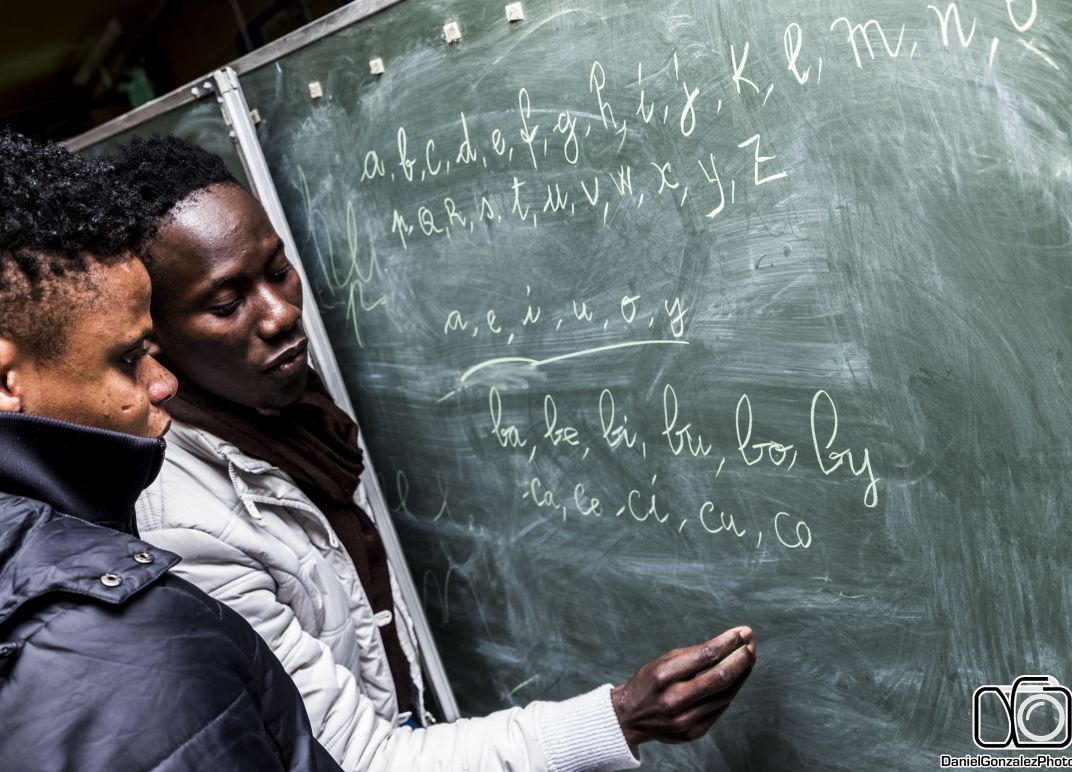 a, b, c, d, e, f, g, h, i, j, K, l, m, n, o
p, Q, R, s, t, u, v, W, x, y, Z
a, e, i, u, o, y
ba, be, bi, bu, bo, by
ca, ce, ci, cu, co
DanielGonzalezPhoto